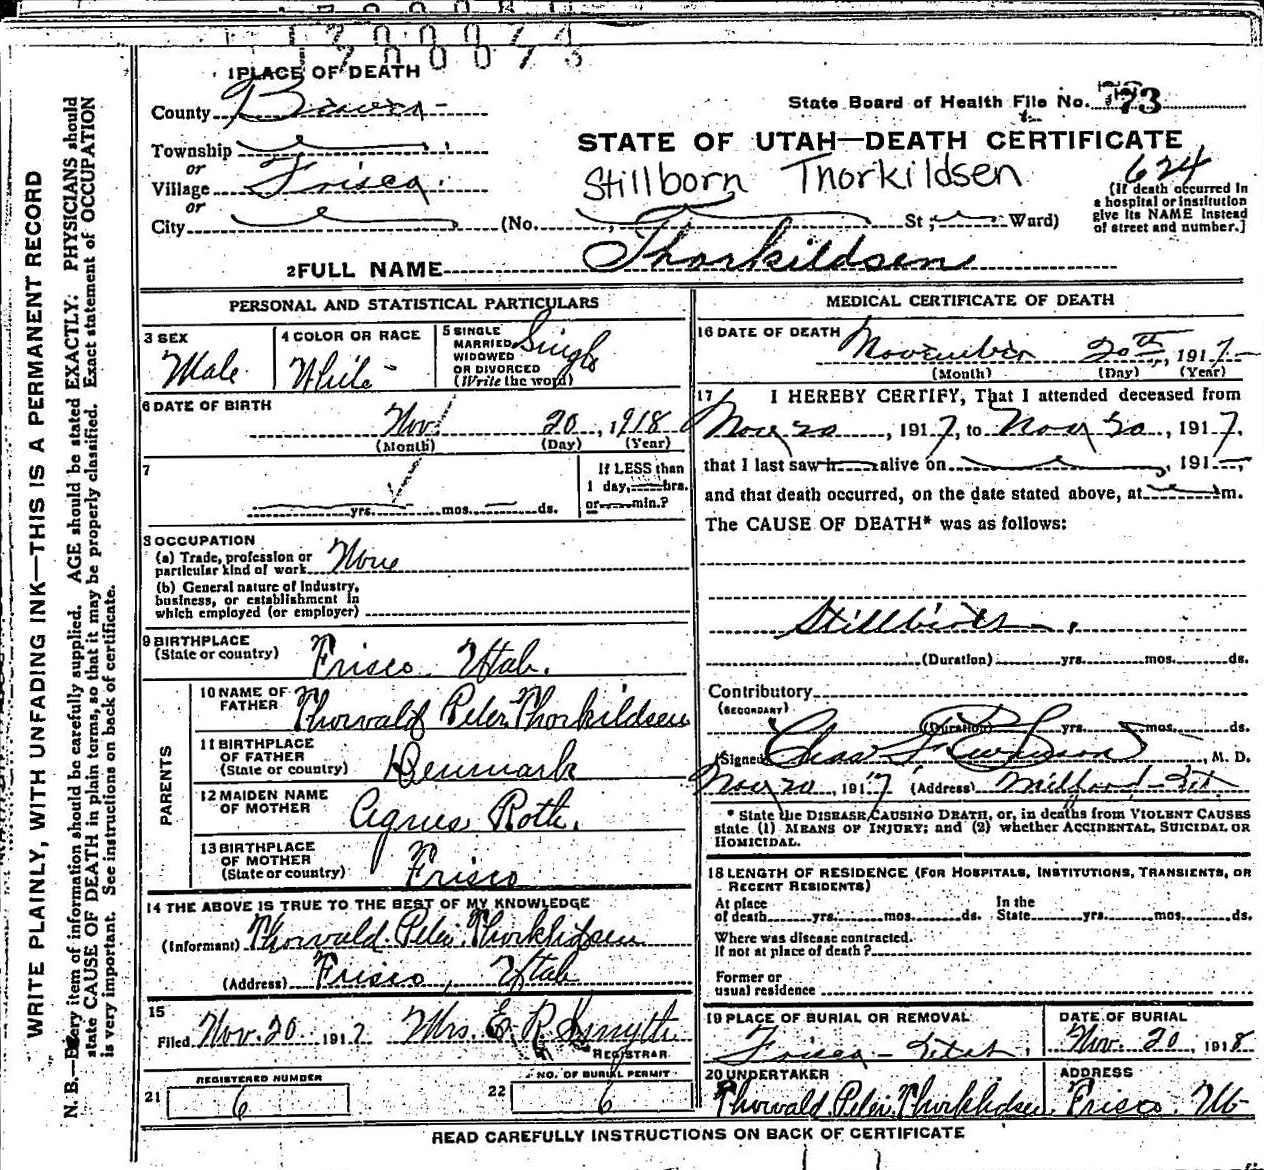 1700073
1 PLACE OF DEATH
County Beaver
State Board of Health File No. 73
STATE OF UTAH—DEATH CERTIFICATE
Township
or
Village Frisco
or
City (No. St; Ward)
Stillborn Thorkildsen
624
(If death occurred in a hospital or institution give its NAME instead of street and number.]
2 FULL NAME Thorkildsen
PERSONAL AND STATISTICAL PARTICULARS
3 SEX
Male
4 COLOR OR RACE
White
5 SINGLE MARRIED WIDOWED OR DIVORCED (Write the word)
Single
6 DATE OF BIRTH
Nov. 20, 1918
(Month) (Day) (Year)
7
yrs. mos. ds.
If LESS than 1 day, hrs. or min.?
8 OCCUPATION
(a) Trade, profession or particular kind of work None
(b) General nature of industry, business, or establishment in which employed (or employer)
9 BIRTHPLACE
(State or country) Frisco Utah.
PARENTS
10 NAME OF FATHER Thorwald Peter Thorkildsen
11 BIRTHPLACE OF FATHER (State or country) Denmark
12 MAIDEN NAME OF MOTHER Agnes Roth.
13 BIRTHPLACE OF MOTHER (State or country) Frisco
14 THE ABOVE IS TRUE TO THE BEST OF MY KNOWLEDGE
(Informant) Thorwald Peter Thorkildsen
(Address) Frisco, Utah
15
Filed Nov. 20 1917 Mrs. E. R. Smyth
REGISTRAR
REGISTERED NUMBER
21 6
NO. OF BURIAL PERMIT
22 6
MEDICAL CERTIFICATE OF DEATH
16 DATE OF DEATH November 20th, 1917
(Month) (Day) (Year)
17 I HEREBY CERTIFY, That I attended deceased from
Nov 20, 1917, to Nov 20, 1917,
that I last saw h alive on , 191 ,
and that death occurred, on the date stated above, at m.
The CAUSE OF DEATH* was as follows:
Stillbirth.
(Duration) yrs. mos. ds.
Contributory
(SECONDARY)
(Duration) yrs. mos. ds.
(Signed) Chas , M. D.
Nov 20, 1917 (Address) Milford Ut
* State the DISEASE CAUSING DEATH, or, in deaths from VIOLENT CAUSES
state (1) MEANS OF INJURY; and (2) whether ACCIDENTAL, SUICIDAL OR
HOMICIDAL.
18 LENGTH OF RESIDENCE (FOR HOSPITALS, INSTITUTIONS, TRANSIENTS, OR
RECENT RESIDENTS)
At place of death yrs. mos. ds. In the State yrs. mos. ds.
Where was disease contracted.
If not at place of death?
Former or
usual residence
19 PLACE OF BURIAL OR REMOVAL
Frisco - Utah.
DATE OF BURIAL
Nov. 20, 1918
20 UNDERTAKER
Thorwald Peter Thorkildsen
ADDRESS
Frisco Ut
READ CAREFULLY INSTRUCTIONS ON BACK OF CERTIFICATE
WRITE PLAINLY, WITH UNFADING INK—THIS IS A PERMANENT RECORD
N. B.—Every item of information should be carefully supplied. AGE should be stated EXACTLY. PHYSICIANS should
state CAUSE OF DEATH in plain terms, so that it may be properly classified. Exact statement of OCCUPATION
is very important. See instructions on back of certificate.